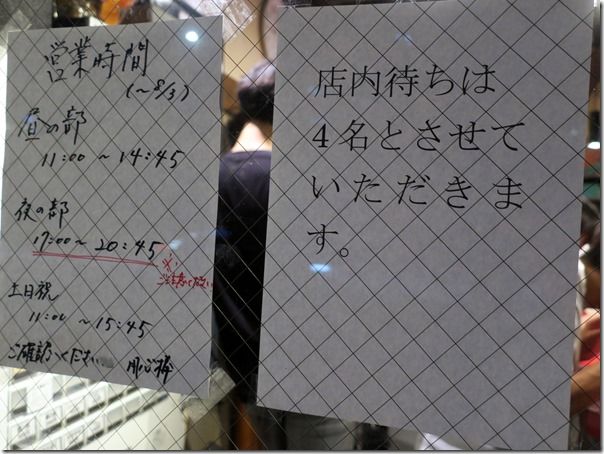 営業時間
(〜8/3)
昼の部
11:00 〜 14:45
夜の部
17:00 〜 20:45
※
ご注意ください
土日祝
11:00 〜 15:45
ご確認ください
店内待ちは
4名とさせて
いただきま
す。